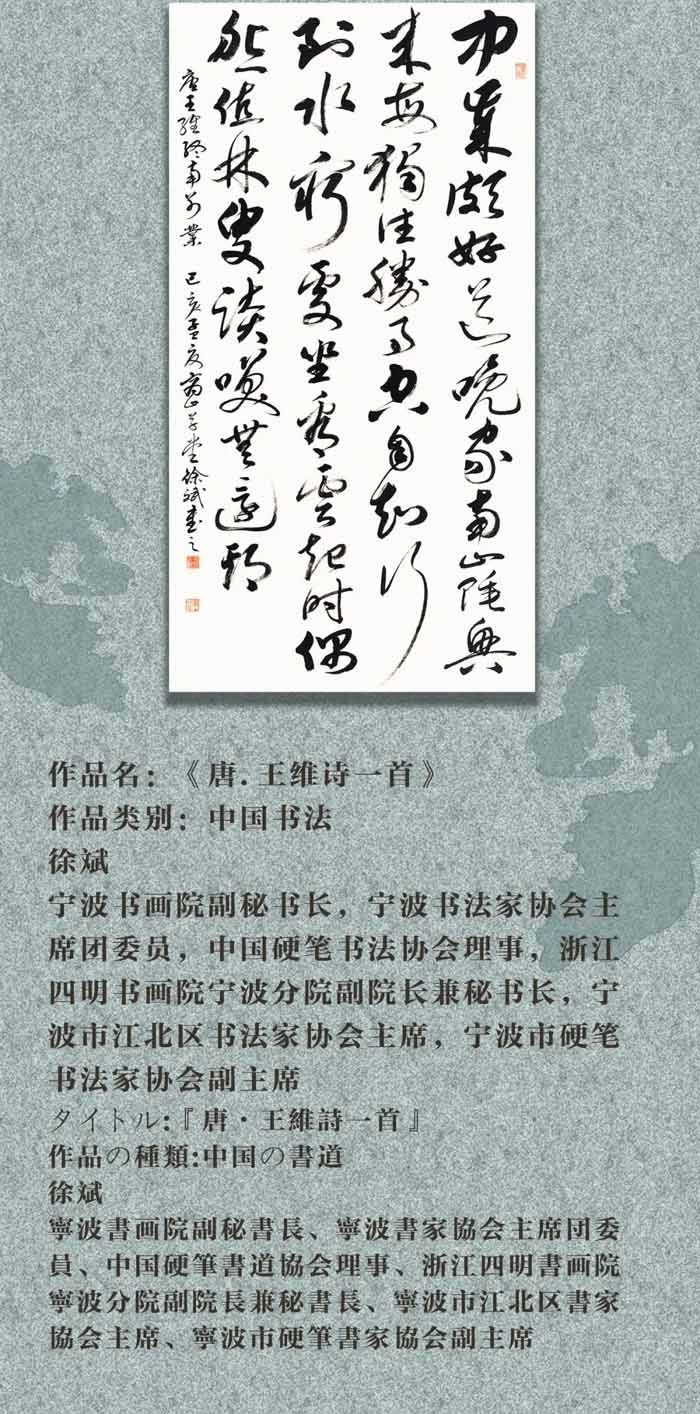 中歲頗好道晚家南山陲興
来每獨往勝事空自知行
到水窮處坐看雲起时偶
然值林叟談笑無還期
唐王維終南別業 己亥孟夏 草堂徐斌書之
作品名：《唐.王维诗一首》
作品类别：中国书法
徐斌
宁波书画院副秘书长，宁波书法家协会主
席团委员，中国硬笔书法协会理事，浙江
四明书画院宁波分院副院长兼秘书长，宁
波市江北区书法家协会主席，宁波市硬笔
书法家协会副主席
タイトル:『唐·王維詩一首』
作品の種類:中国の書道
徐斌
寧波書画院副秘書長、寧波書家協会主席団委
員、中国硬筆書道協会理事、浙江四明書画院
寧波分院副院長兼秘書長、寧波市江北区書家
協会主席、寧波市硬筆書家協会副主席